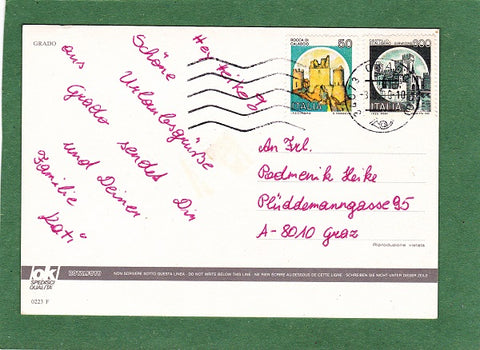 GRADO
Hey Heike,
Schöne
Urlaubsgrüße
aus Grado sendet Dir
und Deiner
Familie
Kati
ROCCA DI
CALASCIO
50
ITALIA
ITALIA
An Frl.
Podmenik Heike
Plüddemanngasse 95
A-8010 Graz
Riproduzione vietata
ok
SPEDISCI
QUALITÀ
NON SCRIVERE SOTTO QUESTA LINEA - DO NOT WRITE BELOW THIS LINE - NE RIEN ECRIRE AU-DESSOUS DE CETTE LIGNE - SCHREIBEN SIE NICHT UNTER DIESER ZEILE
0225 F